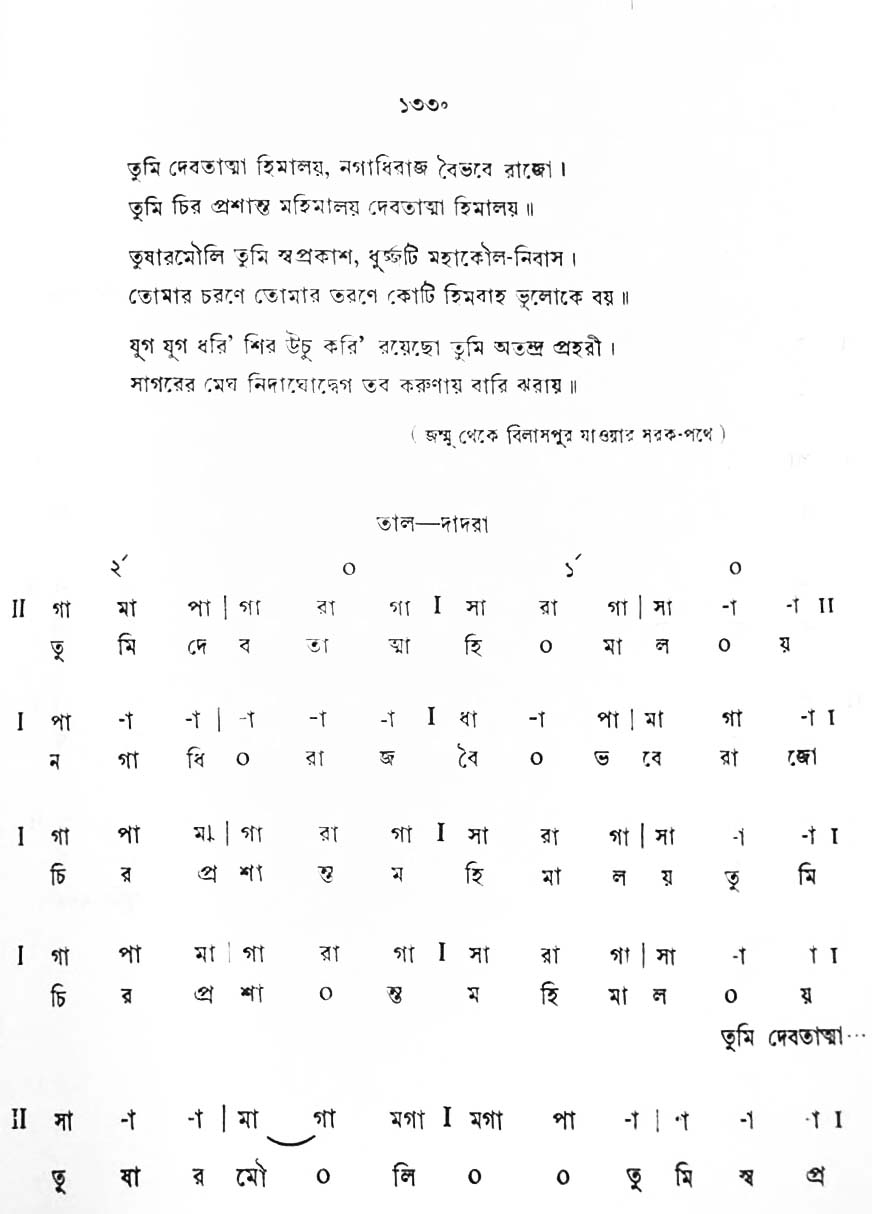 ১৩৩০
তুমি দেবতাত্মা হিমালয়, নগাধিরাজ বৈভবে রাজো ।
তুমি চির প্রশান্ত মহিমালয় দেবতাত্মা হিমালয় ॥
তুষারমৌলি তুমি স্বপ্রকাশ, ধূর্জ্জটি মহাকৌল-নিবাস ।
তোমার চরণে তোমার তরণে কোটি হিমবাহ ভূলোকে বয় ॥
যুগ যুগ ধরি' শির উঁচু করি' রয়েছো তুমি অতন্দ্র প্রহরী ।
সাগরের মেঘ নিদাঘোদ্বেগ তব করুণায় বারি ঝরায় ॥
( জম্মু থেকে বিলাসপুর যাওয়ার সরক-পথে )
তাল—দাদরা
২́ ০ ১́ ০
II গা মা পা | গা রা গা I সা রা গা | সা -া -া II
তু মি দে ব তা ত্মা হি ০ মা ল ০ য়
I পা -া -া | -া -া -া I ধা -া পা | মা গা -া I
ন গা ধি ০ রা জ বৈ ০ ভ বে রা জো
I গা পা মা | গা রা গা I সা রা গা | সা -া -া I
চি র প্র শা ন্ত ম হি মা ল য় তু মি
I গা পা মা | গা রা গা I সা রা গা | সা -া া I
চি র প্র শা ০ ন্ত ম হি মা ল ০ য়
তুমি দেবতাত্মা…
II সা -া -া | মা গা মগা I মগা পা -া | -া -া -া I
তু ষা র মৌ ০ লি ০ ০ তু মি স্ব প্র